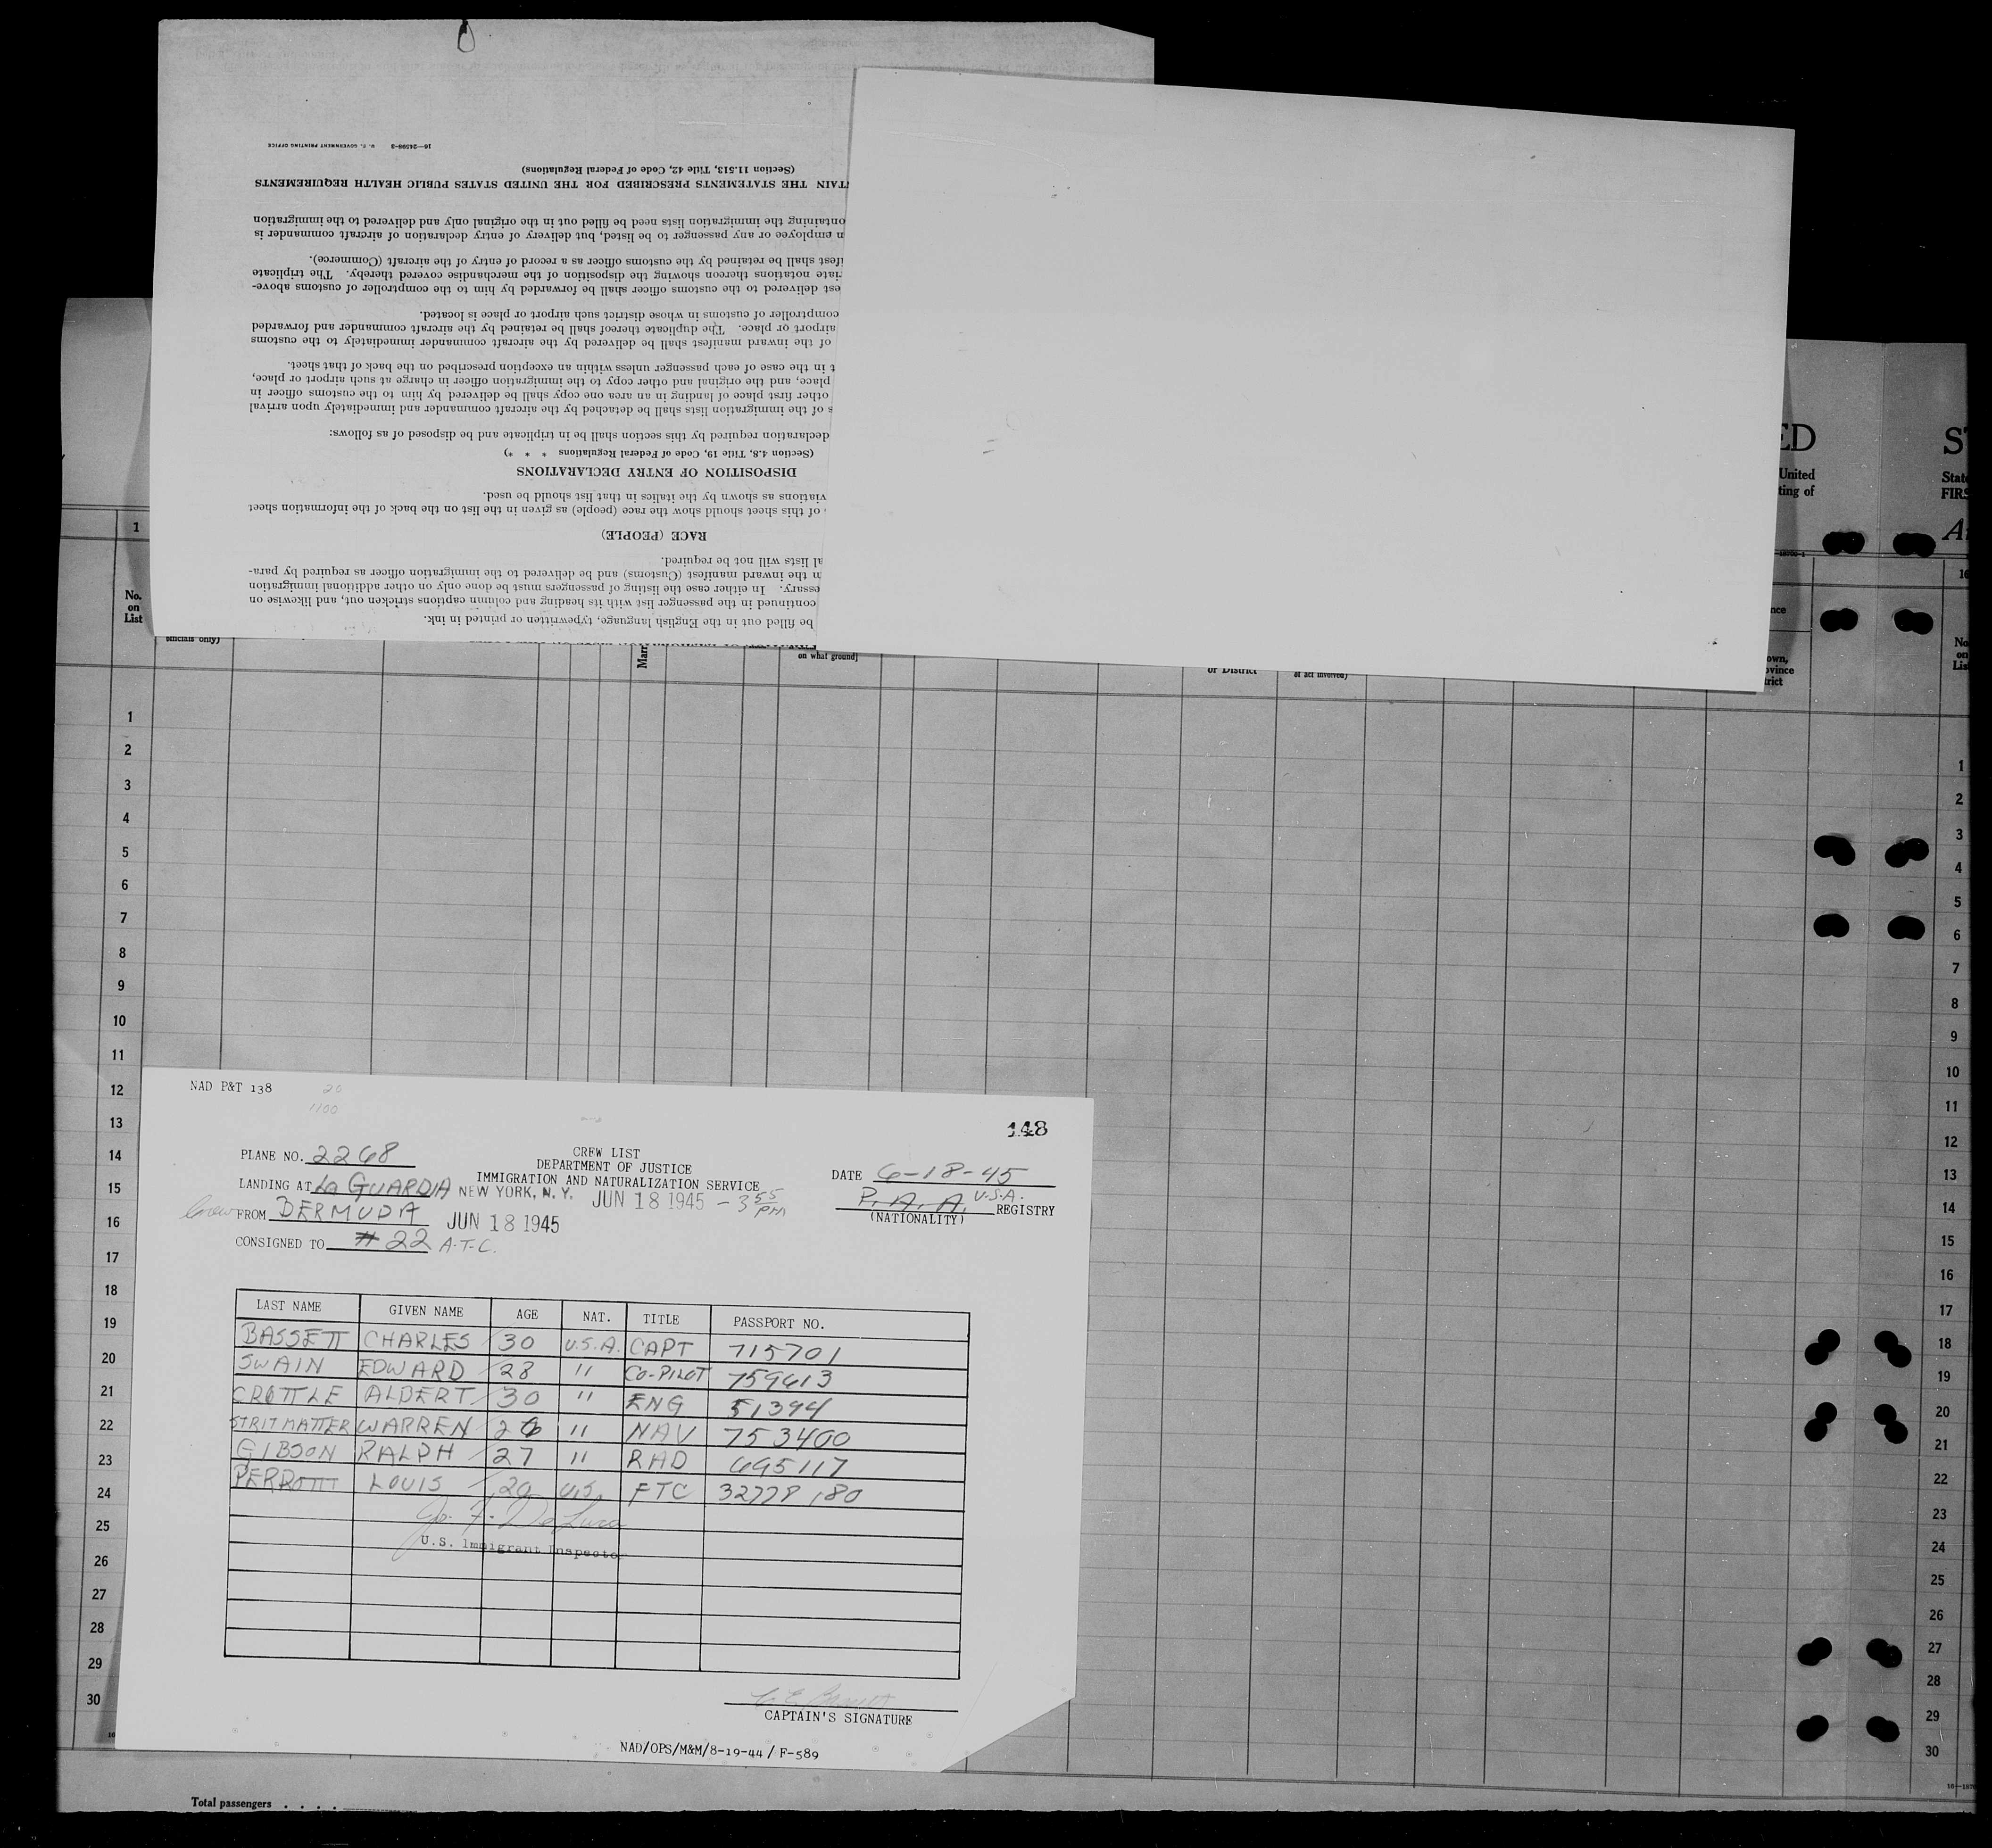 16—24598-3 U. S. GOVERNMENT PRINTING OFFICE
(Section 11.513, Title 42, Code of Federal Regulations)
THE STATEMENTS PRESCRIBED FOR THE UNITED STATES PUBLIC HEALTH REQUIREMENTS
ontaining the immigration lists need be filled out in the original only and delivered to the immigration
n employee or any passenger to be listed, but delivery of entry declaration of aircraft commander is
ifest shall be retained by the customs officer as a record of entry of the aircraft (Commerce).
iate notations thereon showing the disposition of the merchandise covered thereby. The triplicate
est delivered to the customs officer shall be forwarded by him to the comptroller of customs above-
comptroller of customs in whose district such airport or place is located.
airport or place. The duplicate thereof shall be retained by the aircraft commander and forwarded
of the inward manifest shall be delivered by the aircraft commander immediately to the customs
t in the case of each passenger unless within an exception prescribed on the back of that sheet.
place, and the original and other copy to the immigration officer in charge at such airport or place,
other first place of landing in an area one copy shall be delivered by him to the customs officer in
s of the immigration lists shall be detached by the aircraft commander and immediately upon arrival
declaration required by this section shall be in triplicate and be disposed of as follows:
(Section 4.8, Title 19, Code of Federal Regulations * * *)
DISPOSITION OF ENTRY DECLARATIONS
viations as shown by the italics in that list should be used.
of this sheet should show the race (people) as given in the list on the back of the information sheet
RACE (PEOPLE)
al lists will not be required.
n the inward manifest (Customs) and be delivered to the immigration officer as required by para-
essary. In either case the listing of passengers must be done only on other additional immigration
continued in the passenger list with its heading and column captions stricken out, and likewise on
be filled out in the English language, typewritten or printed in ink.
ED
United
ting of
ST
State
FIRS
1
No.
on
List
officials only)
Marr
on what ground]
or District
of act involved)
nce
own,
ovince
trict
16
No.
on
List
1
2
3
4
5
6
7
8
9
10
11
12
13
14
15
16
17
18
19
20
21
22
23
24
25
26
27
28
29
30
NAD P&T 138
20
1100
148
PLANE NO. 2268
CREW LIST
DEPARTMENT OF JUSTICE
IMMIGRATION AND NATURALIZATION SERVICE
DATE 6-18-45
LANDING AT LA GUARDIA NEW YORK, N. Y. JUN 18 1945 - 3 55 PM
P. A. A. U.S.A. REGISTRY
(NATIONALITY)
FROM BERMUDA JUN 18 1945
CONSIGNED TO # 22 A.T.C.
LAST NAME GIVEN NAME AGE NAT. TITLE PASSPORT NO.
BASSETT CHARLES 30 U.S.A. CAPT 715701
SWAIN EDWARD 28 " CO-PILOT 759613
CROTTLE ALBERT 30 " ENG 51394
STRITMATTER WARREN 26 " NAV 753400
GIBSON RALPH 27 " RAD 695117
PERROTTI LOUIS 20 U.S. FTC 32778180
Jo. F. DeLuca
U.S. Immigrant Inspector
CAPTAIN'S SIGNATURE
NAD/OPS/M&M/8-19-44/F-589
Total passengers . . . .
1
2
3
4
5
6
7
8
9
10
11
12
13
14
15
16
17
18
19
20
21
22
23
24
25
26
27
28
29
30